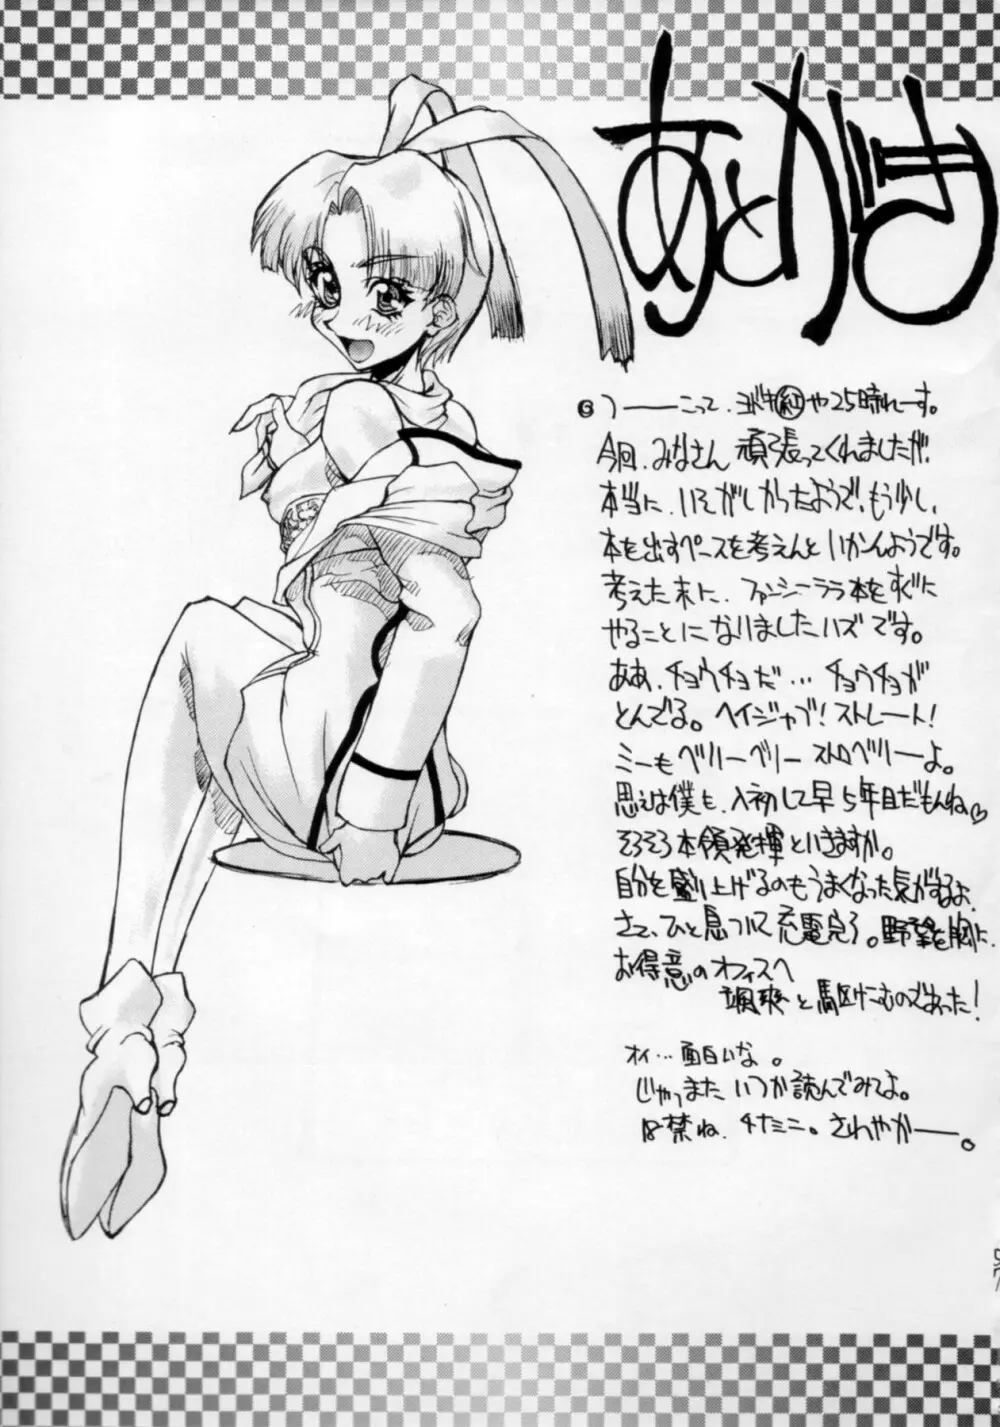 あとがき
つーーこって、ヨドキ㊙や25時れーす。
今回、みなさん頑張ってくれましたが、
本当に、いそがしかったようで、もう少し、
本を出すペースを考えんといかんようです。
考えた末に、ファンシーララ本をすぐに
やることになりましたハズです。
ああ、チョウチョだ…チョウチョが
とんでる。ヘイジャブ!ストレート!
ミーもベリーベリーストロベリーーよ。
思えば僕も、入初して早5年目だもんね♡
そろそろ本領発揮といきますか。
自分を盛り上げるのもうまくなった気がするよ。
さて、ひと息ついて充電完了。野望を胸に、
お得意のオフィスへ
颯爽と駆けこむのであった!
オイ…面白いな。
じゃっまたいつか読んでみてよ。
18禁ね、チナミニ。さわやかーー。